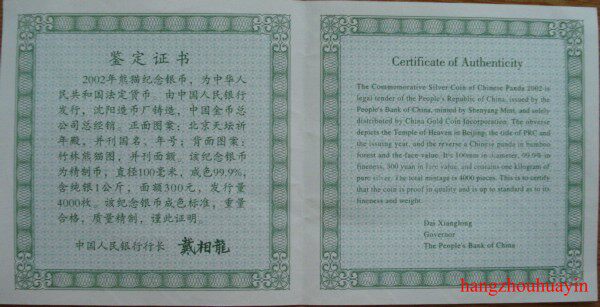 鉴定证书
2002年熊猫纪念银币，为中华人
民共和国法定货币。由中国人民银行
发行，沈阳造币厂铸造，中国金币总
公司总经销。正面图案：北京天坛祈
年殿，并刊国名、年号；背面图案：
竹林熊猫图，并刊面额。该纪念银币
为精制币，直径100毫米，成色99.9%，
含纯银1公斤，面额300元，发行量
4000枚。该纪念银币成色标准，重量
合格，质量精制，谨此证明。
中国人民银行行长 戴相龍
Certificate of Authenticity
The Commemorative Silver Coin of Chinese Panda 2002 is
legal tender of the People's Republic of China, issued by the
People's Bank of China, minted by Shenyang Mint, and solely
distributed by China Gold Coin Incorporation. The obverse
depicts the Temple of Heaven in Beijing, the title of PRC and
the issuing year, and the reverse a Chinese panda in bamboo
forest and the face value. It's 100mm in diameter, 99.9% in
fineness, 300 yuan in face value, and contains one kilogram of
pure silver. The total mintage is 4000 pieces. This is to certify
that the coin is proof in quality and is up to standard as to its
fineness and weight.
Dai Xianglong
Governor
The People's Bank of China
hangzhouhuayin